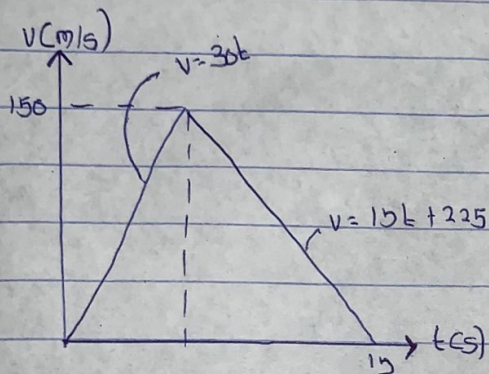 V(m/s)
v=30t
150
v= 15t + 225
t(s)
15